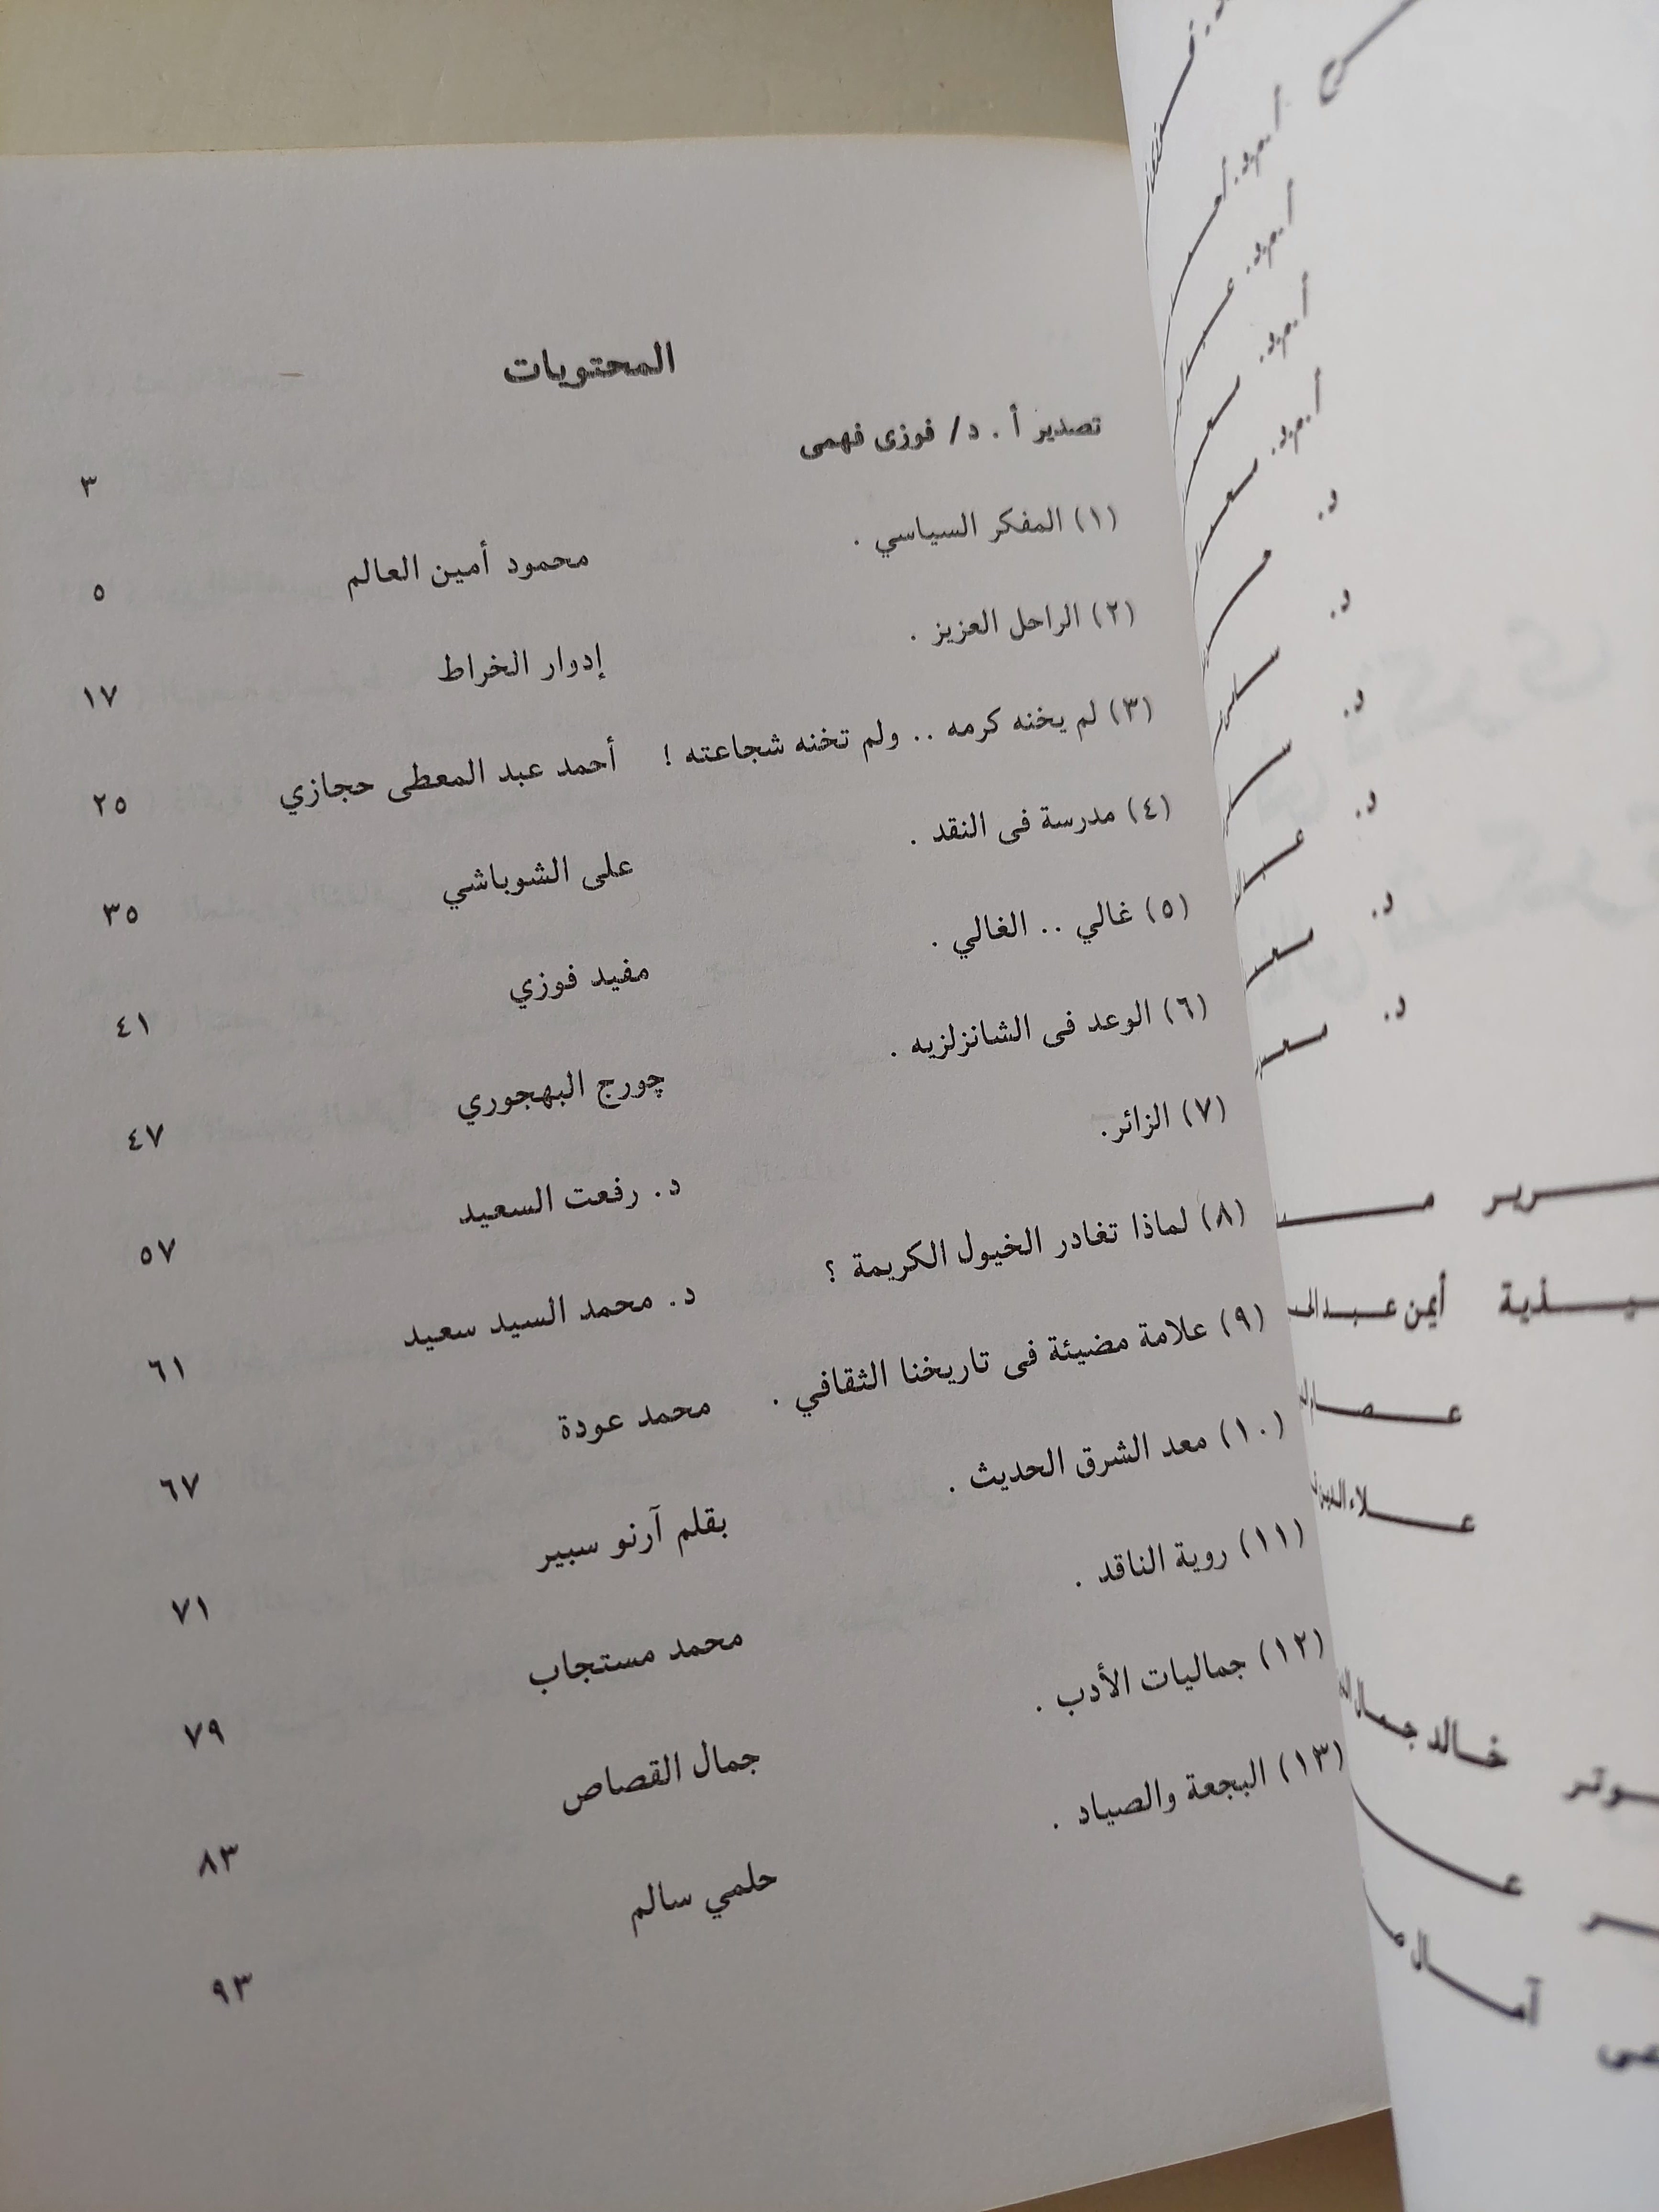 المحتويات
تصدير أ . د/ فوزى فهمى ٣
(١) المفكر السياسي . محمود أمين العالم ٥
(٢) الراحل العزيز . إدوار الخراط ١٧
(٣) لم يخنه كرمه .. ولم تخنه شجاعته ! أحمد عبد المعطى حجازي ٢٥
(٤) مدرسة فى النقد . على الشوباشي ٣٥
(٥) غالي .. الغالي . مفيد فوزي ٤١
(٦) الوعد فى الشانزلزيه . چورج البهجوري ٤٧
(٧) الزائر. د. رفعت السعيد ٥٧
(٨) لماذا تغادر الخيول الكريمة ؟ د. محمد السيد سعيد ٦١
(٩) علامة مضيئة فى تاريخنا الثقافي . محمد عودة ٦٧
(١٠) معد الشرق الحديث . بقلم آرنو سبير ٧١
(١١) روية الناقد . محمد مستجاب ٧٩
(١٢) جماليات الأدب . جمال القصاص ٨٣
(١٣) البجعة والصياد . حلمي سالم ٩٣
أ.م.د.
أ.م.د.
أ.م.د.
أ.م.د.
د.
د.
د.
د.
د.
د.
أيمن
خالد جمال